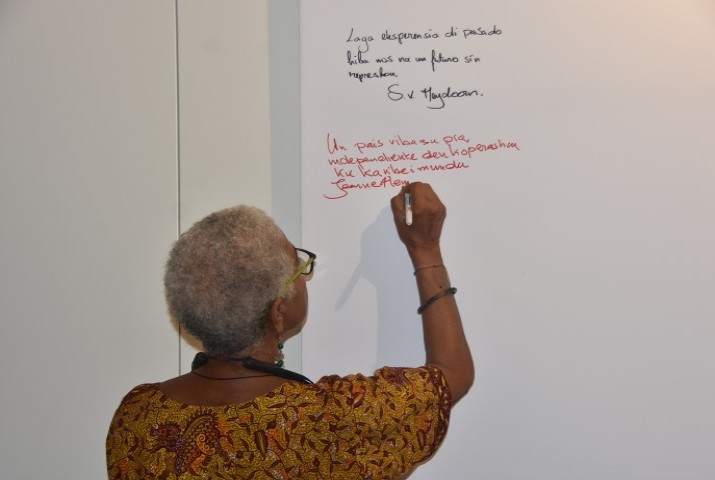 Laga eksperensia di pasado
hiba nos na un futuro sin
represhon
S. v Heydoorn.
Un pais riba su pia,
independiente den koperashon
ku karibe i mundu
Jeanne Hen